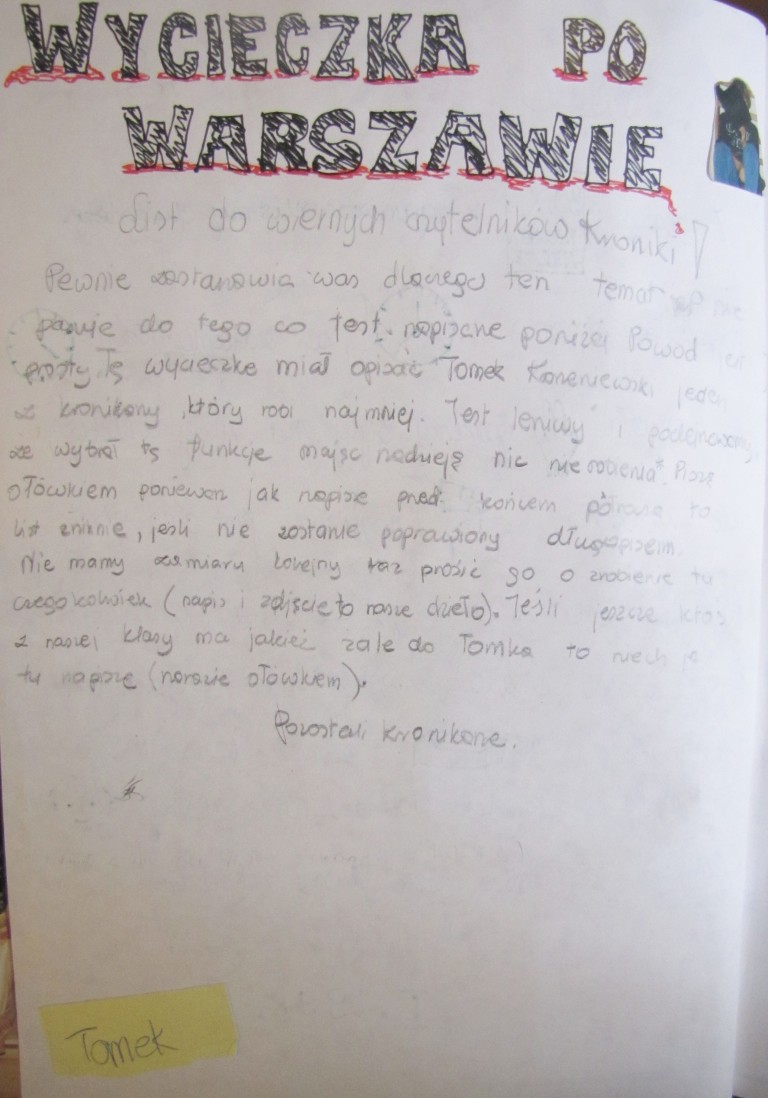 WYCIECZKA PO
WARSZAWIE
List do wiernych czytelników Kroniki!
Pewnie zastanawia was dlaczego ten temat nie
pasuje do tego co jest napisane poniżej Powód jest
prosty Tę wycieczke miał opisać Tomek jeden
z kronikarzy, który robi najmniej. Jest leniwy i podejrzewamy
że wybrał tę funkcje mając nadzieję nic nie robienia. Piszę
ołówkiem ponieważ jak napisze przed końcem półrocza to
list zniknie, jeśli nie zostanie poprawiony długopisem.
Nie mamy zamiaru kolejny raz prosić go o zrobienie tu
czegokolwiek (napis i zdjęcie to nasze dzieło). Jeśli jeszcze ktoś
z naszej klasy ma jakieś żale do Tomka to niech je
tu napisze (narazie ołówkiem).
Pozostali kronikarze.
Tomek